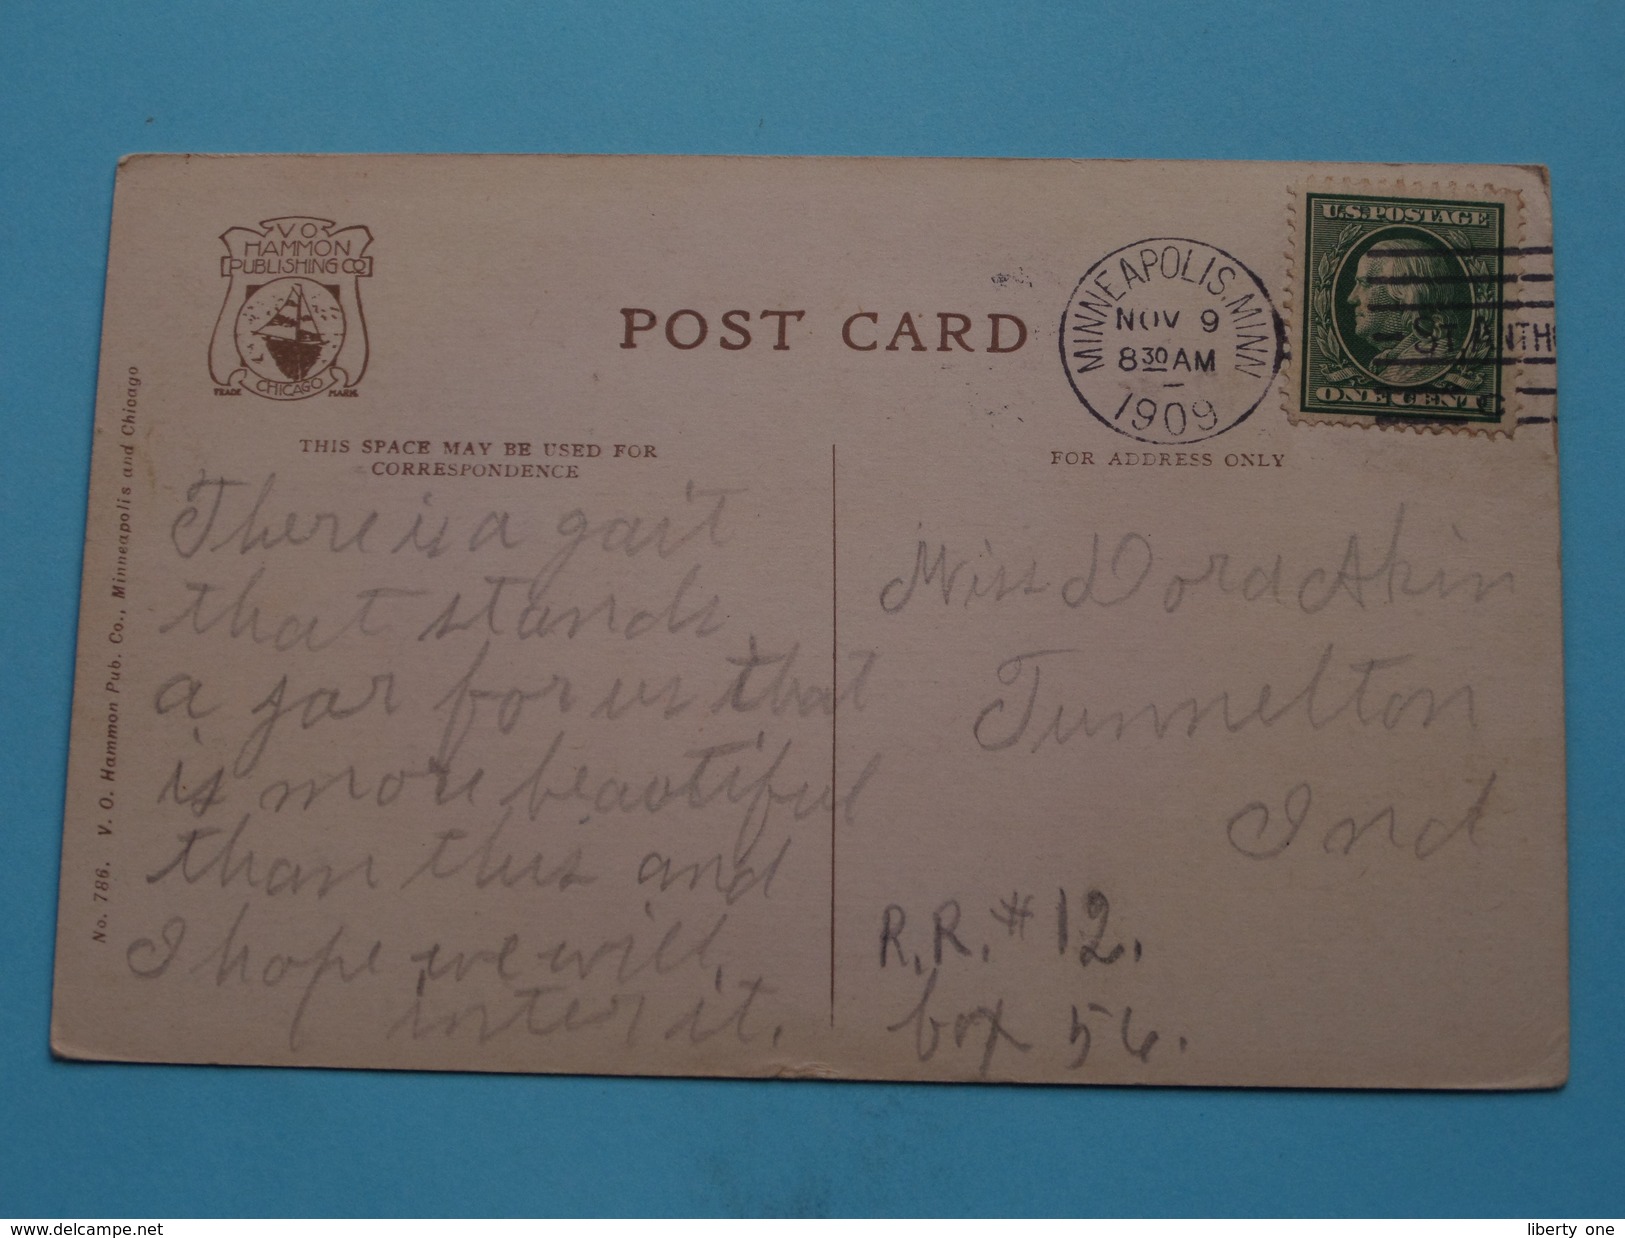 V O
HAMMON
PUBLISHING CO
CHICAGO
TRADE MARK
POST CARD
MINNEAPOLIS, MINN
NOV 9
8 30 AM
1909
U.S. POSTAGE
ONE CENT
ST. ANTH
THIS SPACE MAY BE USED FOR
CORRESPONDENCE
FOR ADDRESS ONLY
There is a gait
that stands
a jar for us that
is more beautiful
than this and
I hope we will
inter it.
Miss Dora Akin
Tunnelton
Ind
R.R. # 12.
box 56.
No. 786. V. O. Hammon Pub. Co., Minneapolis and Chicago
delcampe.net
liberty one